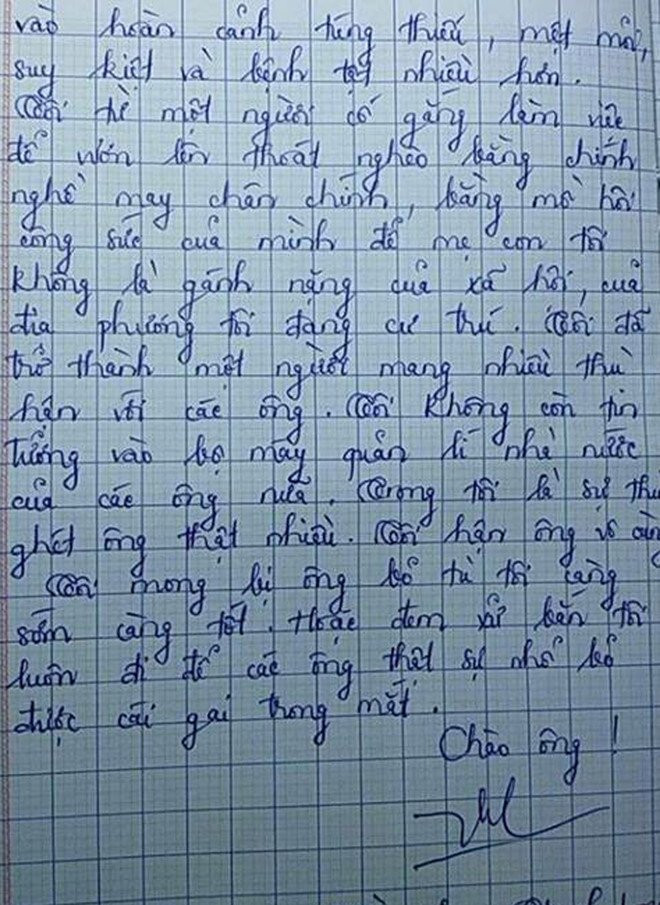 vào hoàn cảnh túng thiếu, mệt mỏi,
suy kiệt và bệnh tật nhiều hơn.
Tôi từ một người cố gắng làm việc
để vươn lên thoát nghèo bằng chính
nghề may chân chính, bằng mồ hôi
công sức của mình để mẹ con tôi
không là gánh nặng của xã hội, của
địa phương tôi đang cư trú. Tôi đã
trở thành một người mang nhiều thù
hận với các ông. Tôi không còn tin
tưởng vào bộ máy quản lí nhà nước
của các ông nữa. Trong tôi là sự thù
ghét ông thật nhiều. Tôi hận ông vô cùng
Tôi mong bị ông bỏ tù tôi càng
sớm càng tốt. Hoặc đem xử bắn tôi
luôn đi để các ông thật sự nhổ bỏ
được cái gai trong mắt.
Chào ông!